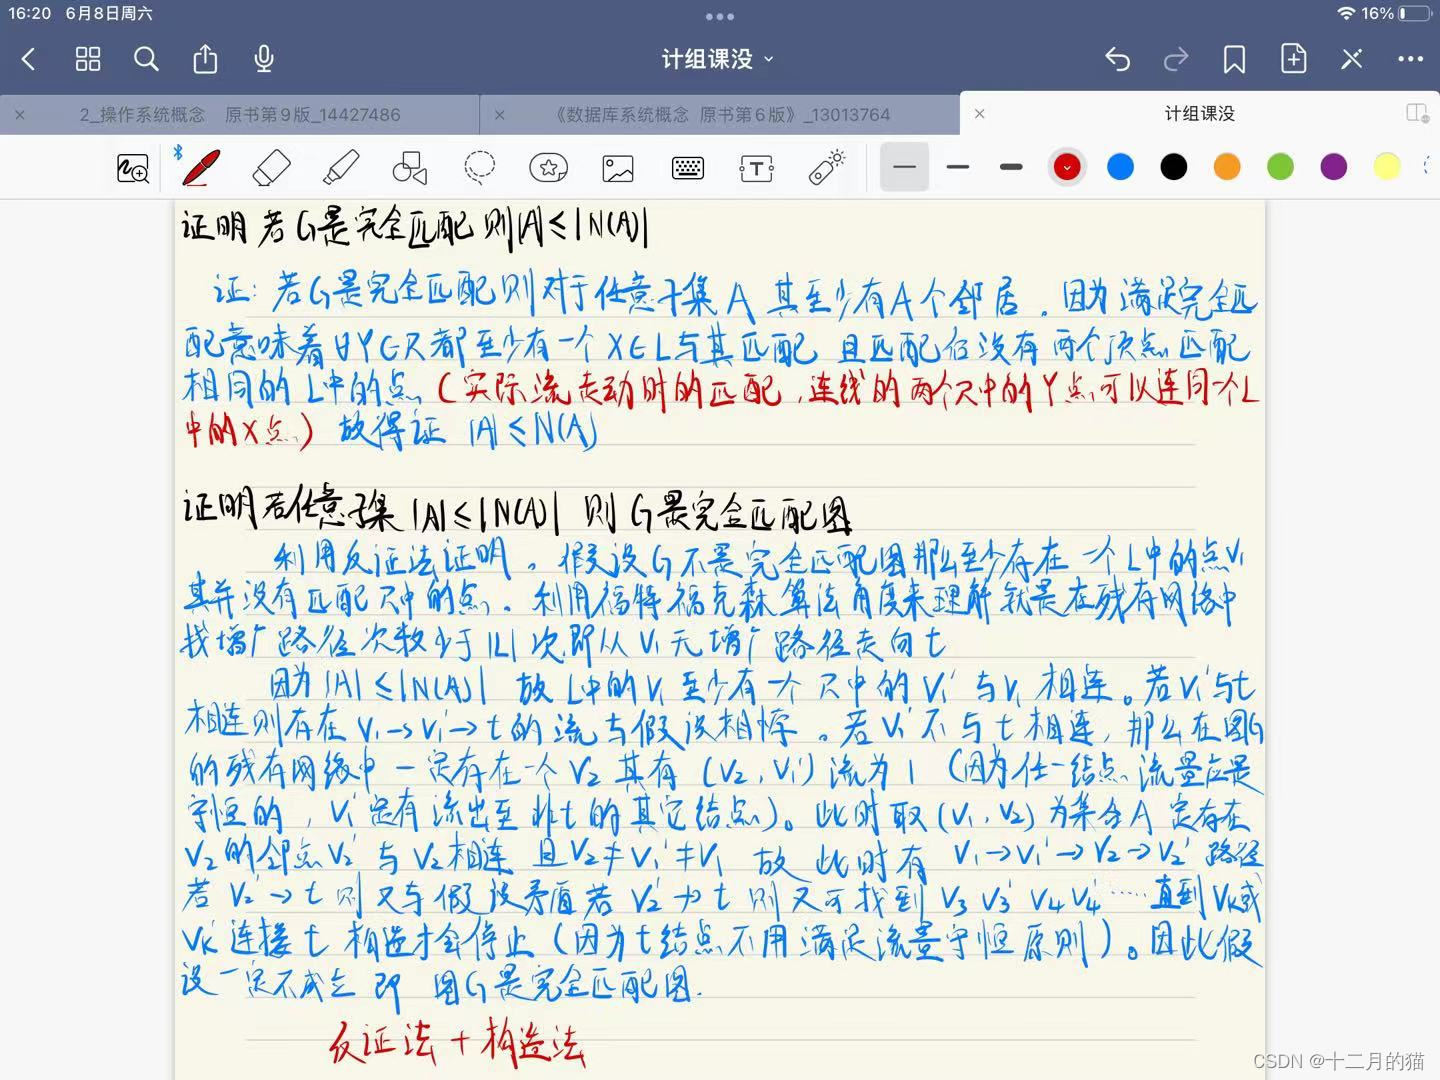 16:20 6月8日周六
16%
计组课没
2_操作系统概念 原书第9版_14427486
《数据库系统概念 原书第6版》_13013764
计组课没
证明 若G是完全匹配 则|A|≤|N(A)|
证: 若G是完全匹配则对于任意子集A 其至少有A个邻居。因为满足完全匹
配意味着∀Y∈R都至少有一个X∈L与其匹配 且匹配后没有两个顶点匹配
相同的L中的点 (实际流走动时的匹配,连线的两个R中的Y点可以连同一个L
中的X点) 故得证 |A|≤N(A)
证明若任意子集|A|≤|N(A)| 则G是完全匹配图
利用反证法证明。假设G不是完全匹配图那么至少存在一个L中的点V₁
其并没有匹配R中的点。利用福特福克森算法角度来理解就是在残存网络中
找增广路径次数少于|L|次.即从V₁无增广路径走向t
因为|A|≤|N(A)| 故L中的V₁至少有一个R中的V₁'与V₁相连。若V₁'与t
相连则存在V₁→V₁'→t的流与假设相悖。若V₁'不与t相连,那么在图G
的残存网络中一定存在一个V₂其有(V₂,V₁')流为1 (因为任一结点流量应是
守恒的,V₁'定有流出至非t的其它结点)。此时取(V₁,V₂)为集合A 定存在
V₂的邻点V₂'与V₂相连 且V₂'≠V₁'≠V₁ 故此时有 V₁→V₁'→V₂→V₂'路径
若V₂'→t则又与假设矛盾若V₂'↛t则又可找到V₃V₃'V₄V₄'……直到Vₖ或
Vₖ'连接t 构造才会停止(因为t结点不用满足流量守恒原则)。因此假
设一定不成立 即 图G是完全匹配图.
反证法+构造法
CSDN @十二月的猫